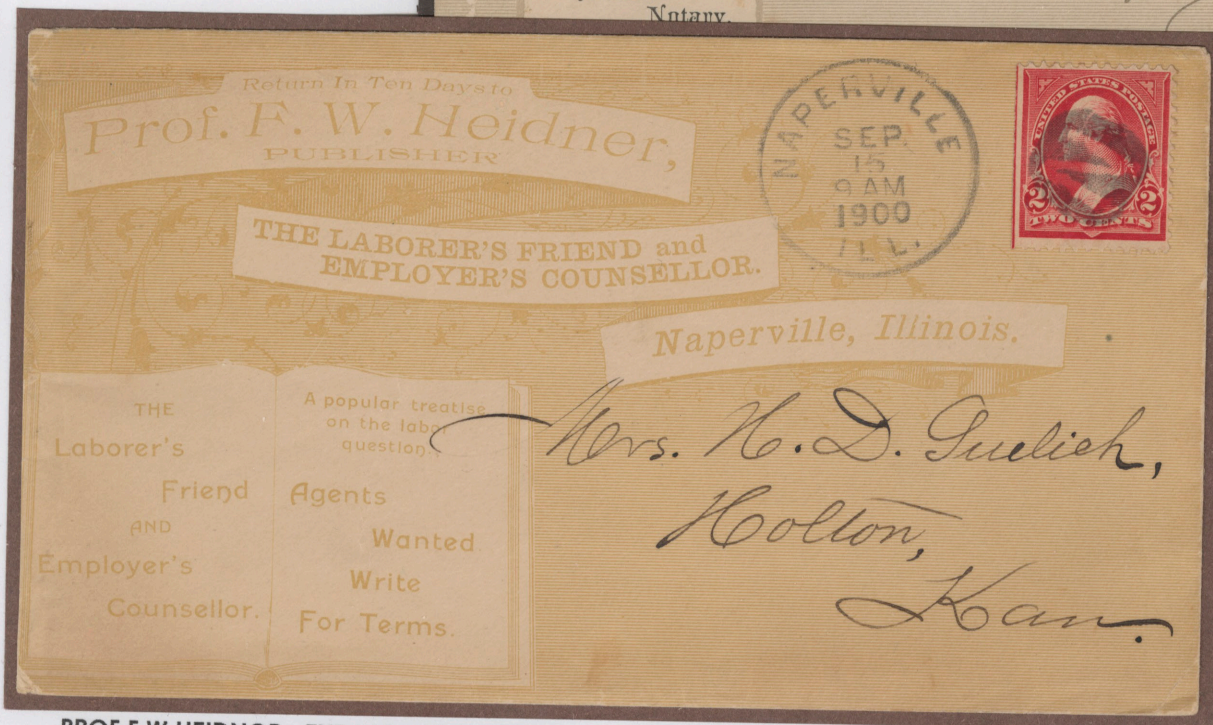 Notary.
Return In Ten Days to
Prof. F. W. Heidner,
PUBLISHER
THE LABORER'S FRIEND and
EMPLOYER'S COUNSELLOR.
Naperville, Illinois.
NAPERVILLE
SEP
15
9 AM
1900
ILL.
UNITED STATES POSTAGE
2 2
TWO CENTS
THE
Laborer's
Friend
AND
Employer's
Counsellor.
A popular treatise
on the labor
question.
Agents
Wanted
Write
For Terms.
Mrs. H. D. Guelich,
Holton,
Kan.